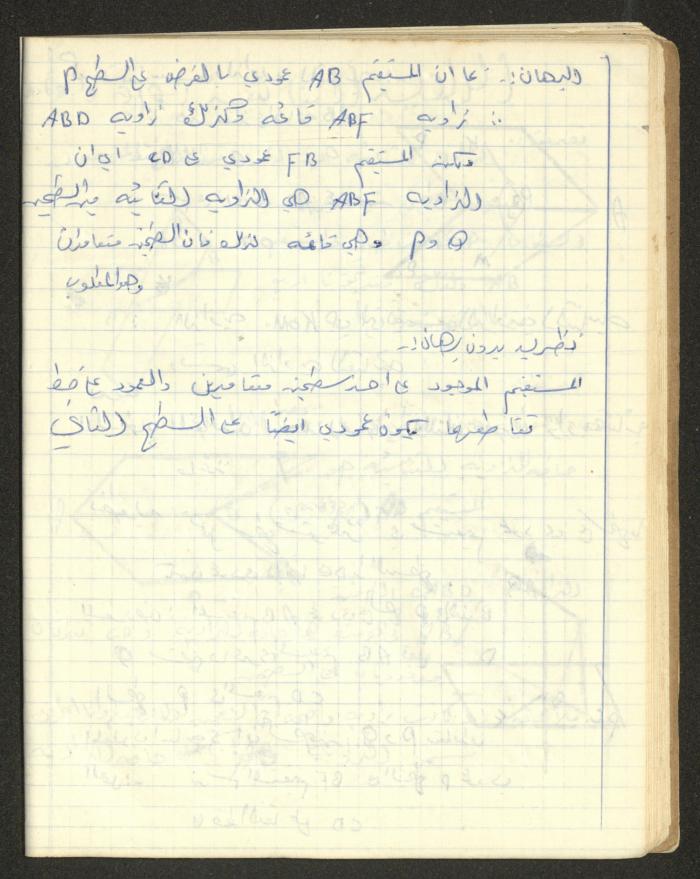 البرهان :- بما ان المستقيم AB عمودي بالفرض على السطح P
∴ زاويه ABF قائمه وكذلك زاويه ABD
ولكن المستقيم FB عمودي على CD اي ان
الزاويه ABF هي الزاويه الثنائيه بين السطحين
Q و P وهي قائمه لذلك فان السطحين متعامدان
وهو المطلوب
نظريه بدون برهان :-
المستقيم الموجود على احد سطحين متعامدين والعمود على خط
تقاطعهما يكون عمودي ايضاً على السطح الثاني